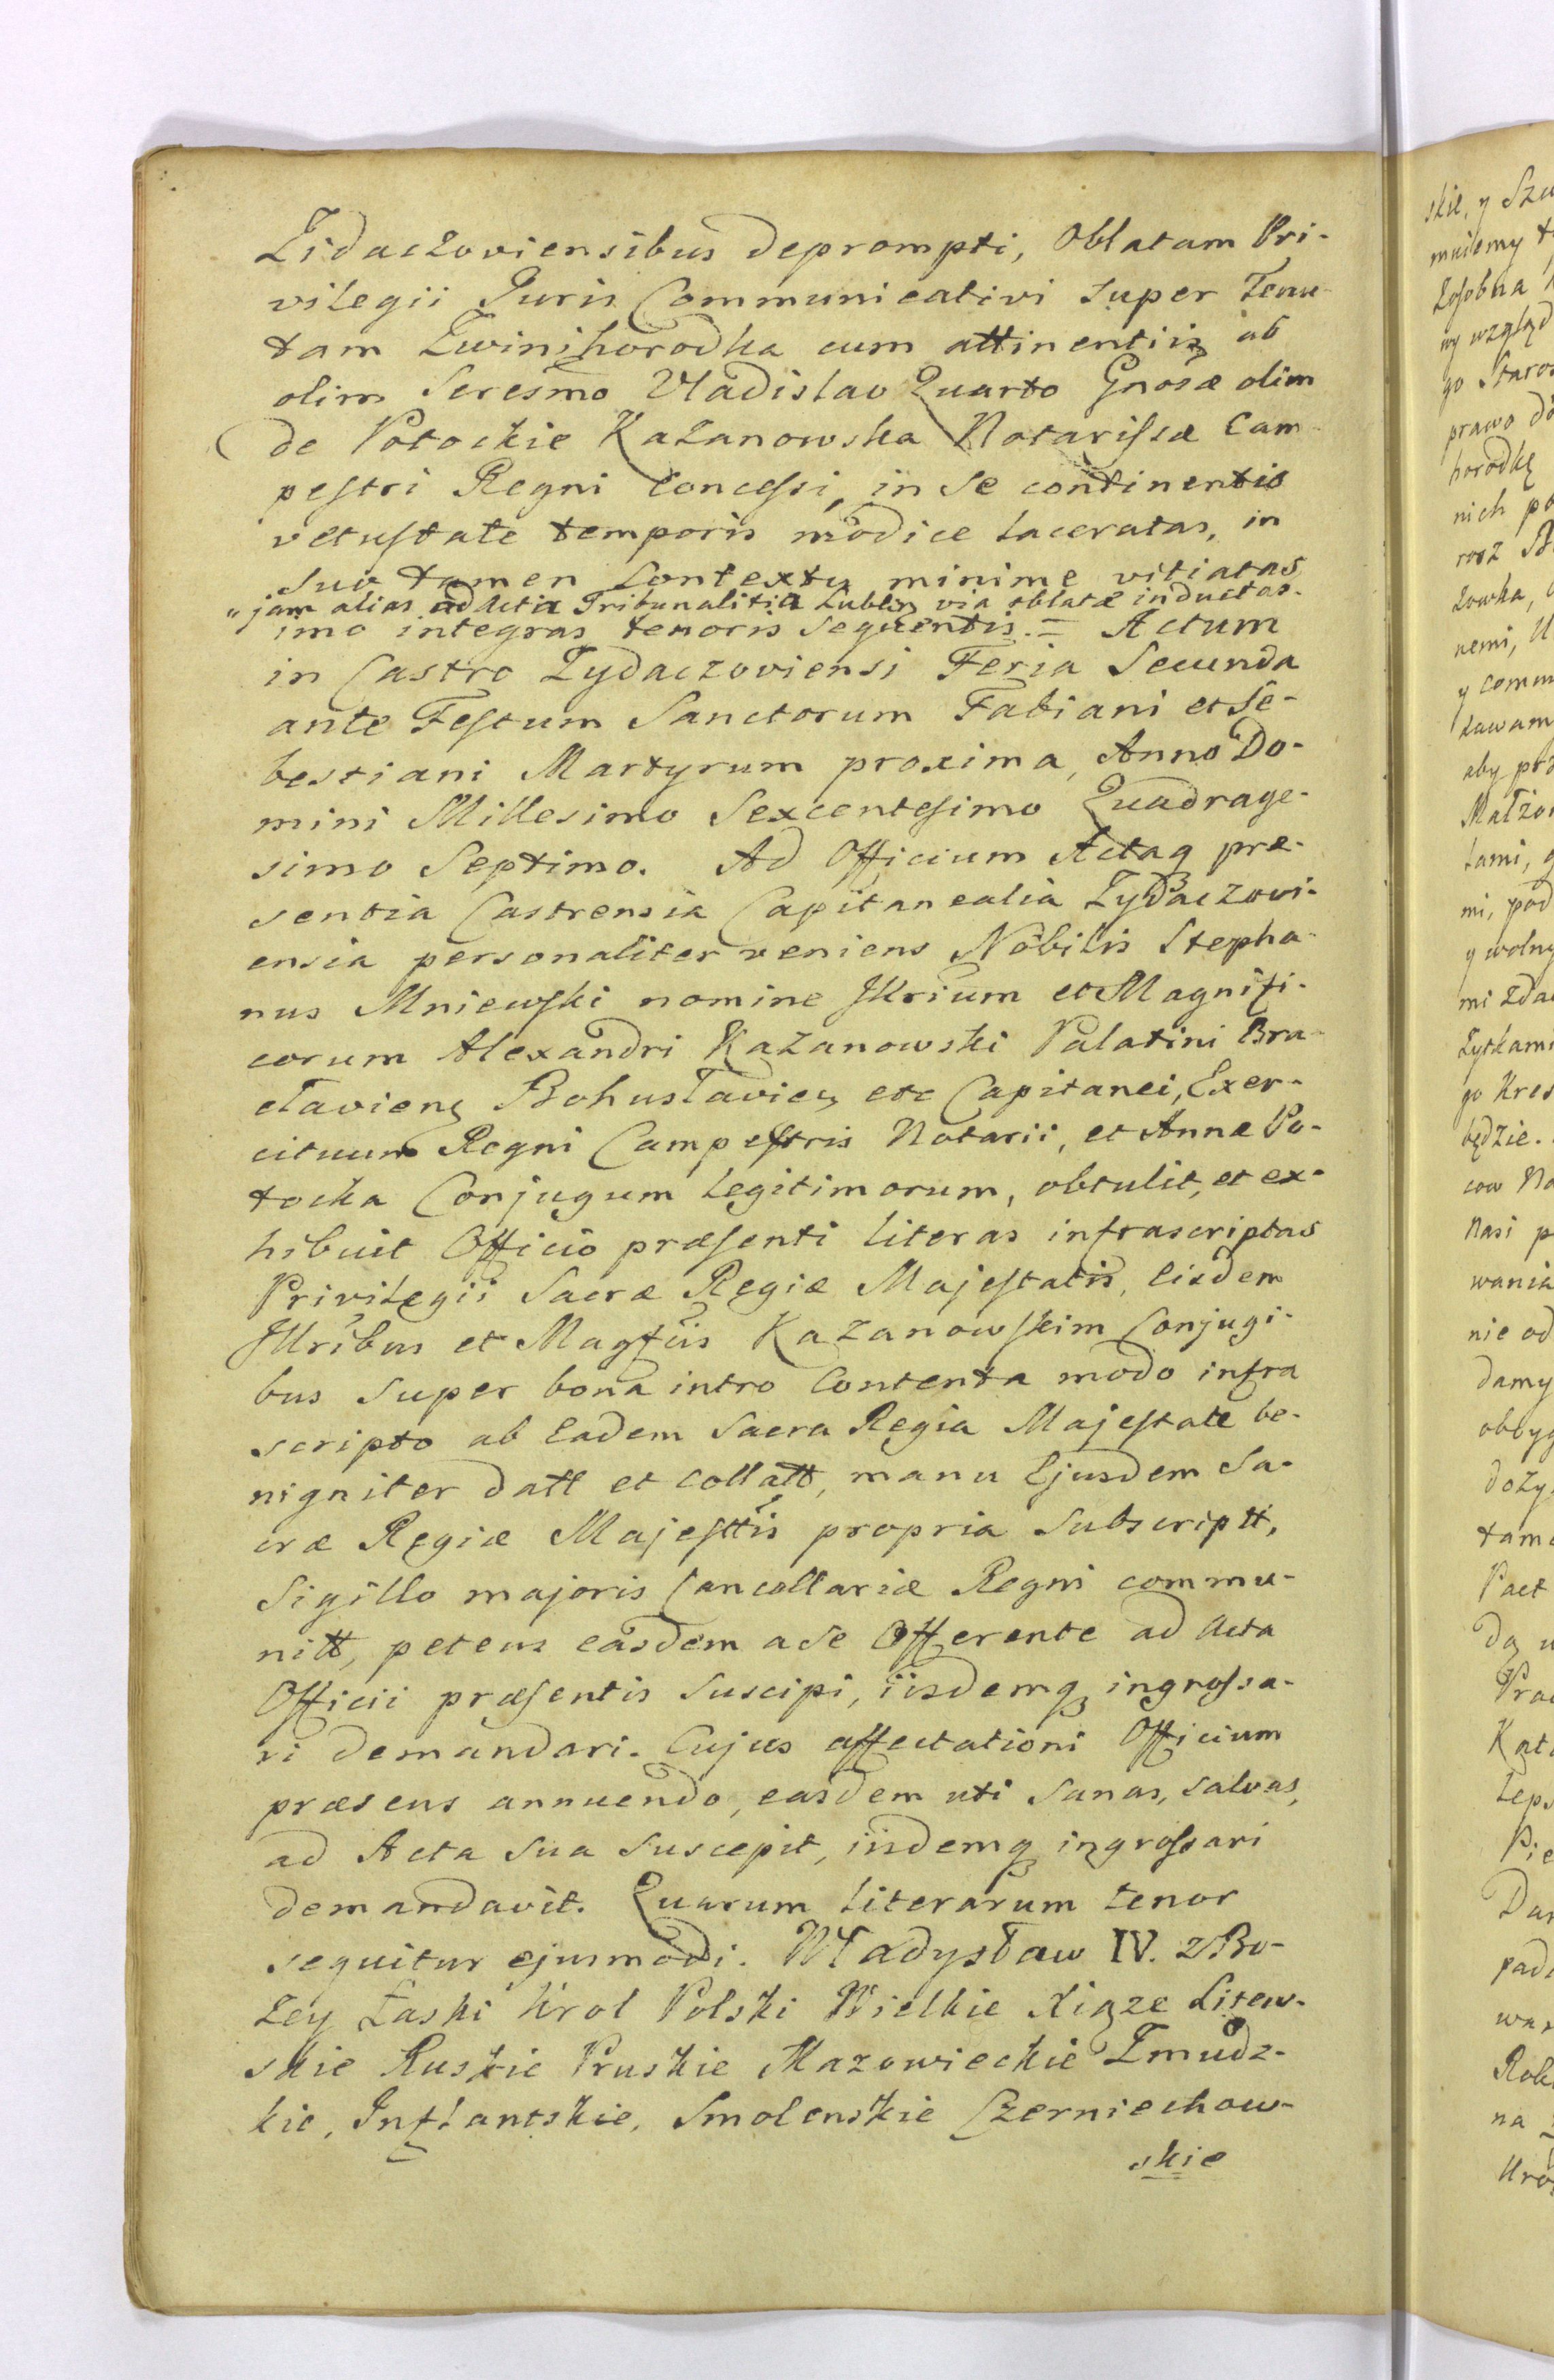 Zidaczoviensibus deprompti, Oblatam Pri-
vilegii Juris Communicativi super Tenu-
tam Zwinihorodka cum attinentiis ab
olim Seresmo Vladislao Quarto Gnosæ olim
de Potockie Kazanowska Notarissæ Cam-
pestri Regni Concessi, in se continentis
vetustate temporis modice laceratas, in
suo tamen Contextu minime vitiatas
"jam alias ad Acta Tribunalitia Lublin via oblatæ inductas.
imo integras tenoris sequentis. = Actum
in Castro Zydaczoviensi Feria Secunda
ante Festum Sanctorum Fabiani et Se-
bestiani Martyrum proxima, Anno Do-
mini Millesimo Sexcentesimo Quadrage-
simo Septimo. Ad Officium Actaq præ-
sentia Castrensia Capitanealia Zydaczovi-
ensia personaliter veniens Nobilis Stepha-
nus Mniewski nomine Illrium et Magnifi-
corum Alexandri Kazanowski Palatini Bra-
cłaviens Bohusłavien etc Capitanei, Exer-
cituum Regni Campestris Notarii, et Annæ Po-
tocka Conjugum legitimorum, obtulit, et ex-
hibuit Officio præsenti literas infrascriptas
Privilegii Sacræ Regiæ Majestatis, Eisdem
Illribus et Magfcis Kazanowskim Conjugi-
bus super bona intro Contenta modo infra
scripto ab Eadem Sacra Regia Majestate be-
nigniter datt et collatt, manu Ejusdem Sa-
cræ Regiæ Majesttis propria Subscriptt,
Sigillo majoris Cancellariæ Regni commu-
nitt, petens easdem a se Offerente ad Acta
Officii præsentis Suscipi, iisdemq ingrossa-
ri demandari. Cujus affectationi Officium
præsens annuendo, easdem uti Sanas, salvas,
ad Acta sua suscepit, iisdemq ingrossari
demandavit. Quarum literarum tenor
sequitur ejusmodi. Władysław IV. z Bo-
żey Łaski Krol Polski Wielkie Xiąze Litew-
skie Ruskie Pruskie Mazowieckie Zmudz-
kie, Inflantskie, Smolenskie Czerniechow-
skie
skie, y
nich
nemi,
aby
nie od
damy
Pact
na